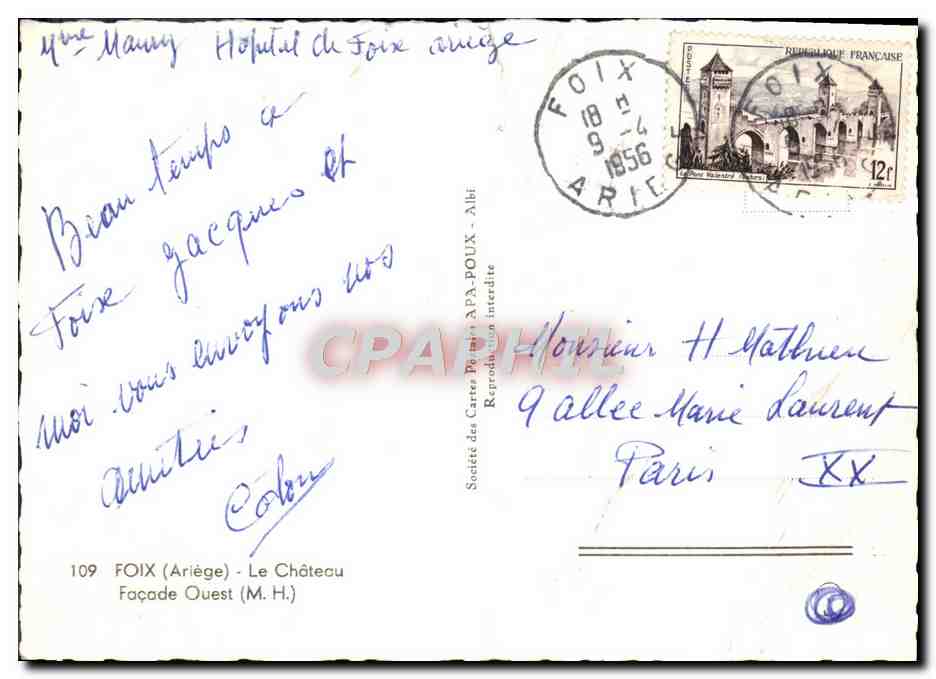 Mme Maury Hopital de Foix ariège
Beau temps a
Foix Jacques et
moi vous envoyons nos
amitiés
109 FOIX (Ariège) - Le Château
Façade Ouest (M. H.)
Société des Cartes Postales APA-POUX - Albi
Reproduction interdite
CPAPHIL
FOIX
18 H
9 -4
1956
ARIEGE
POSTES
REPUBLIQUE FRANÇAISE
Le Pont Valentré
12f
FOIX
Monsieur H Mathieu
9 allee Marie Laurent
Paris XX